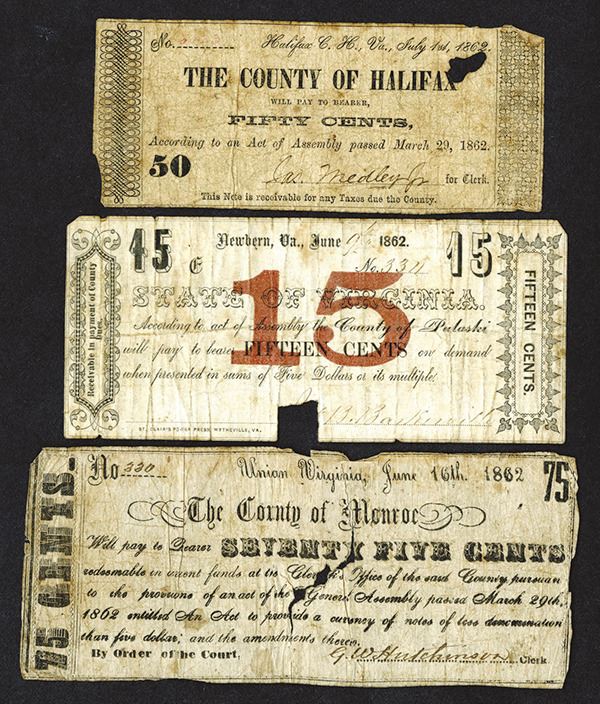 No.
Halifax C. H., Va., July 1st, 1862.
THE COUNTY OF HALIFAX
WILL PAY TO BEARER,
FIFTY CENTS,
According to an Act of Assembly passed March 29, 1862.
50
Jas. Medley Jr for Clerk.
This Note is receivable for any Taxes due the County.
15
Newbern, Va., June 1862.
15
E
No. 334
15
STATE OF VIRGINIA.
According to act of Assembly the County of Pulaski
will pay to bearer FIFTEEN CENTS on demand
when presented in sums of Five Dollars or its multiple.
Receivable in payment of County Dues.
FIFTEEN CENTS.
ST. CLAIR'S POWER PRESS, WYTHEVILLE, VA.
No 330
Union Virginia, June 16th. 1862
75
The County of Monroe
Will pay to Bearer SEVENTY FIVE CENTS
redeemable in current funds at the Clerk's Office of the said County pursuan
to the provisions of an act of the General Assembly passed March 29th,
1862 entitled An Act to provide a currency of notes of less denomination
than five dollar, and the amendments thereto.
By Order of the Court,
G. W. Hutchinson Clerk
75 CENTS.